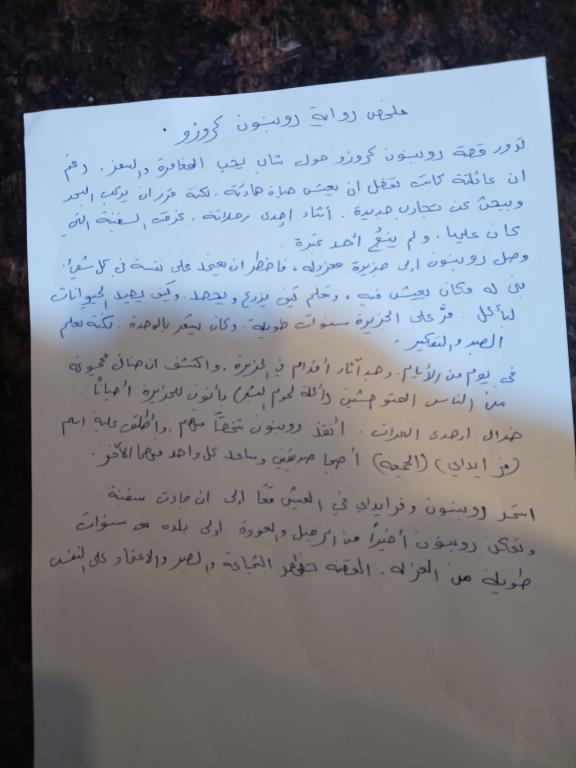 ملخص رواية روبنسون كروزو .
تدور قصة روبنسون كروزو حول شاب يحب المغامرة والسفر . رغم
ان عائلتة كانت تفضل ان يعيش حياة هادئة . لكنة قرر ان يركب البحر
ويبحث عن تجارب جديدة . أثناء إحدى رحلاتة . غرقت السفينة التي
كان عليها . ولم ينج أحد غيرة .
وصل روبنسون الى جزيرة معزولة ، فاضطر ان يعتمد على نفسة في كل شيئ .
بنى له مكان يعيش فيه ، وتعلم كيف يزرع ويحصد . وكيف يصيد الحيوانات
ليأكل . مرّ على الجزيرة سنوات طويلة . وكان يشعر بالوحدة . لكنه تعلم
الصبر والتفكير .
في يوم من الأيام . وجد آثار أقدام في الجزيرة . واكتشف ان هناك مجموعة
من الناس المتوحشين (آكلة لحوم البشر) يأتون للجزيرة أحياناً .
خلال احدى المرات . أنقذ روبنسون شخصاً منهم . وأطلق علية اسم
(فرايداي) (الجمعة) أصبحا صديقين وساعد كل واحد منهما الآخر .
استمر روبنسون وفرايداي في العيش معًا الى ان جاءت سفينة .
وتمكن روبنسون أخيراً من الرحيل والعودة الى بلده بعد سنوات
طويلة من العزله . القصة تظهر الشجاعة والصبر والاعتماد على النفس